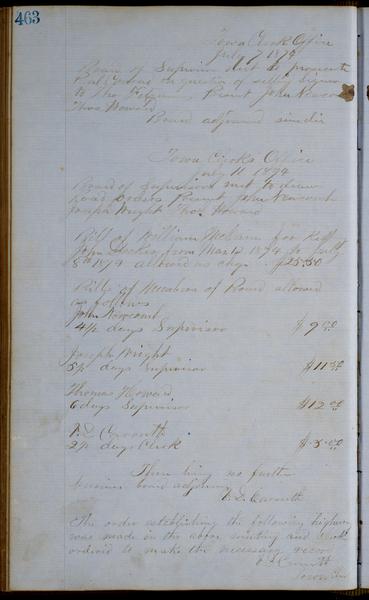 463
Town Clerk Office
July 7 1879
Board of Supervisors met to
on question of
to the Present John Newcomb
Thos Howard
Board adjourned sine die
Town Clerks Office
July 11 1879
Board of Supervisors met to draw
road orders Present John Newcomb
Joseph Wright Thos Howard
Bill of William McCann for
John from Mar 12 1879 to July
5th 1879 allowed $25.50
Bills of Members of Board allowed
as follows
John Newcomb
4½ days Supervisor $9.00
Joseph Wright
5½ days Supervisor $11.00
Thomas Howard
6 days Supervisor $12.00
2½ days Clerk $5.00
There being no further
business board adjourned
The order establishing the following highway
was made in the above meeting and clerk
ordered to make the necessary record
Town